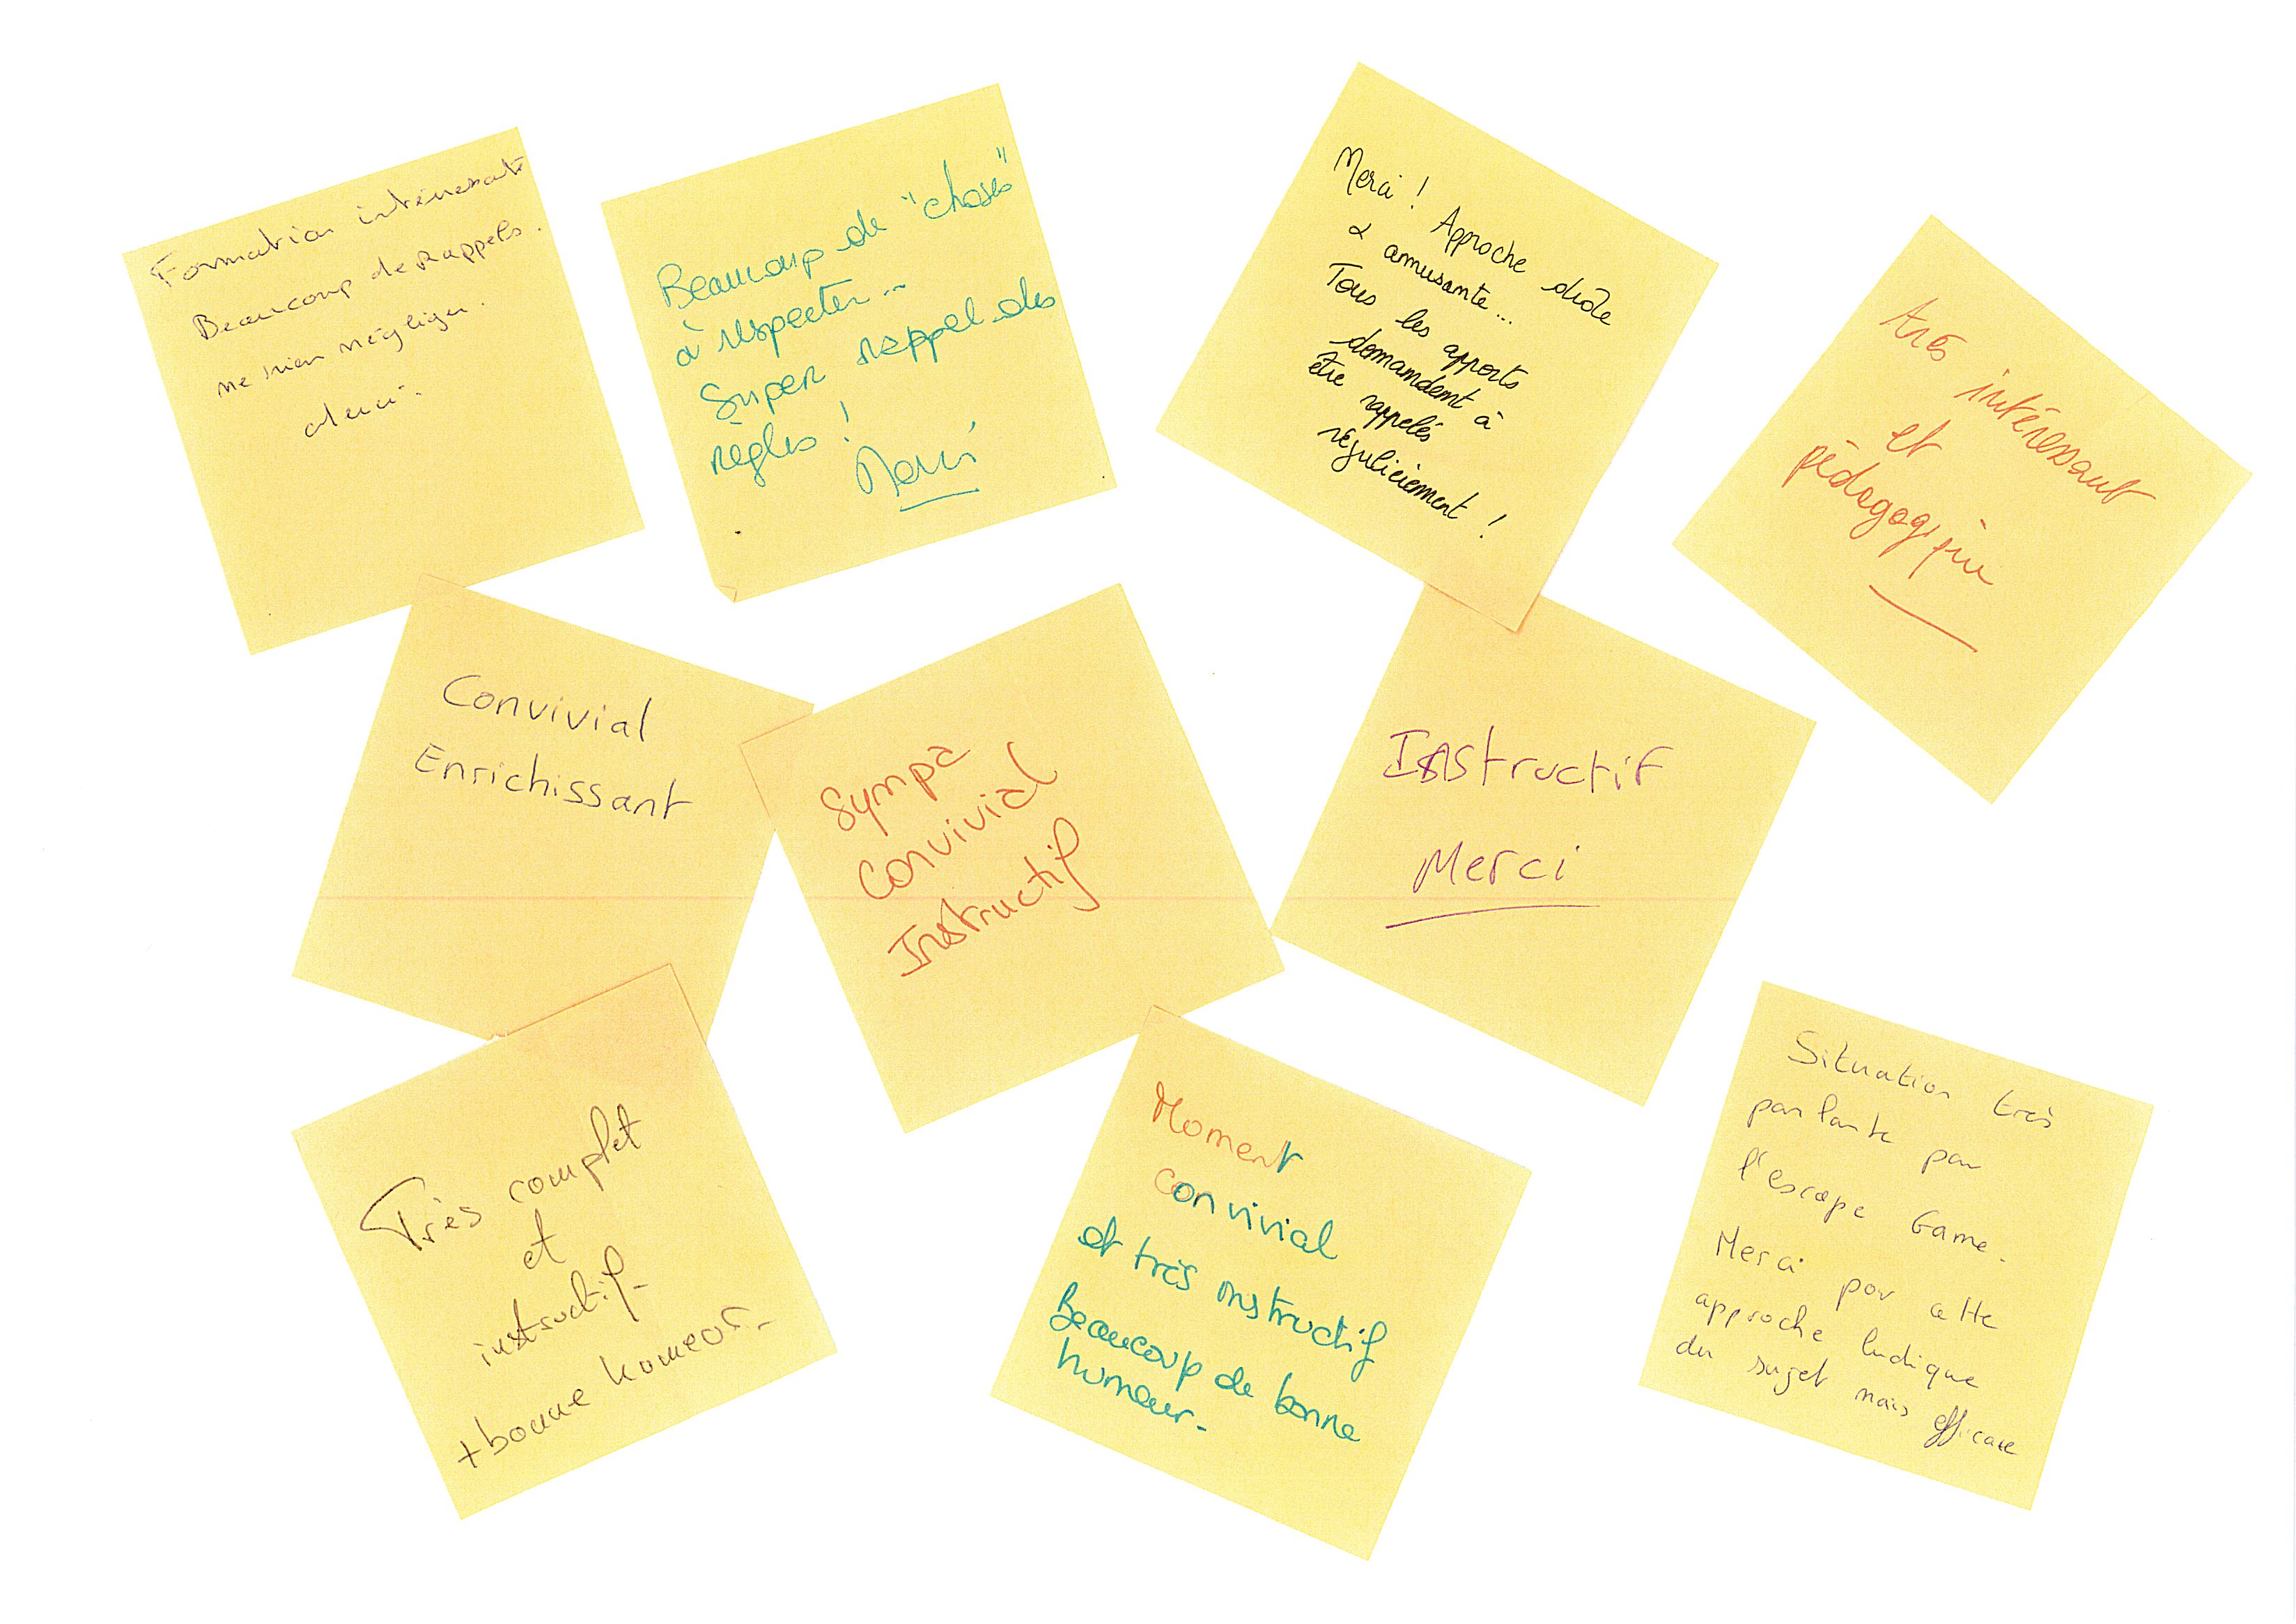 Formation intéressante
Beaucoup de Rappels.
ne rien négliger.
Merci.
Beaucoup de "choses"
à respecter...
Super rappel des
règles !
Merci
Merci ! Approche drôle
& amusante...
Tous les apports
demandent à
être rappelés
régulièrement !
très intéressant
et
pédagogique
Convivial
Enrichissant
Sympa
Convivial
Instructif
Instructif
Merci
Très complet
et
instructif
+ bonne humeur.
Moment
convivial
et très instructif
Beaucoup de bonne
humeur.
Situation très
parlante par
l'escape Game.
Merci pour cette
approche ludique
du sujet mais efficace